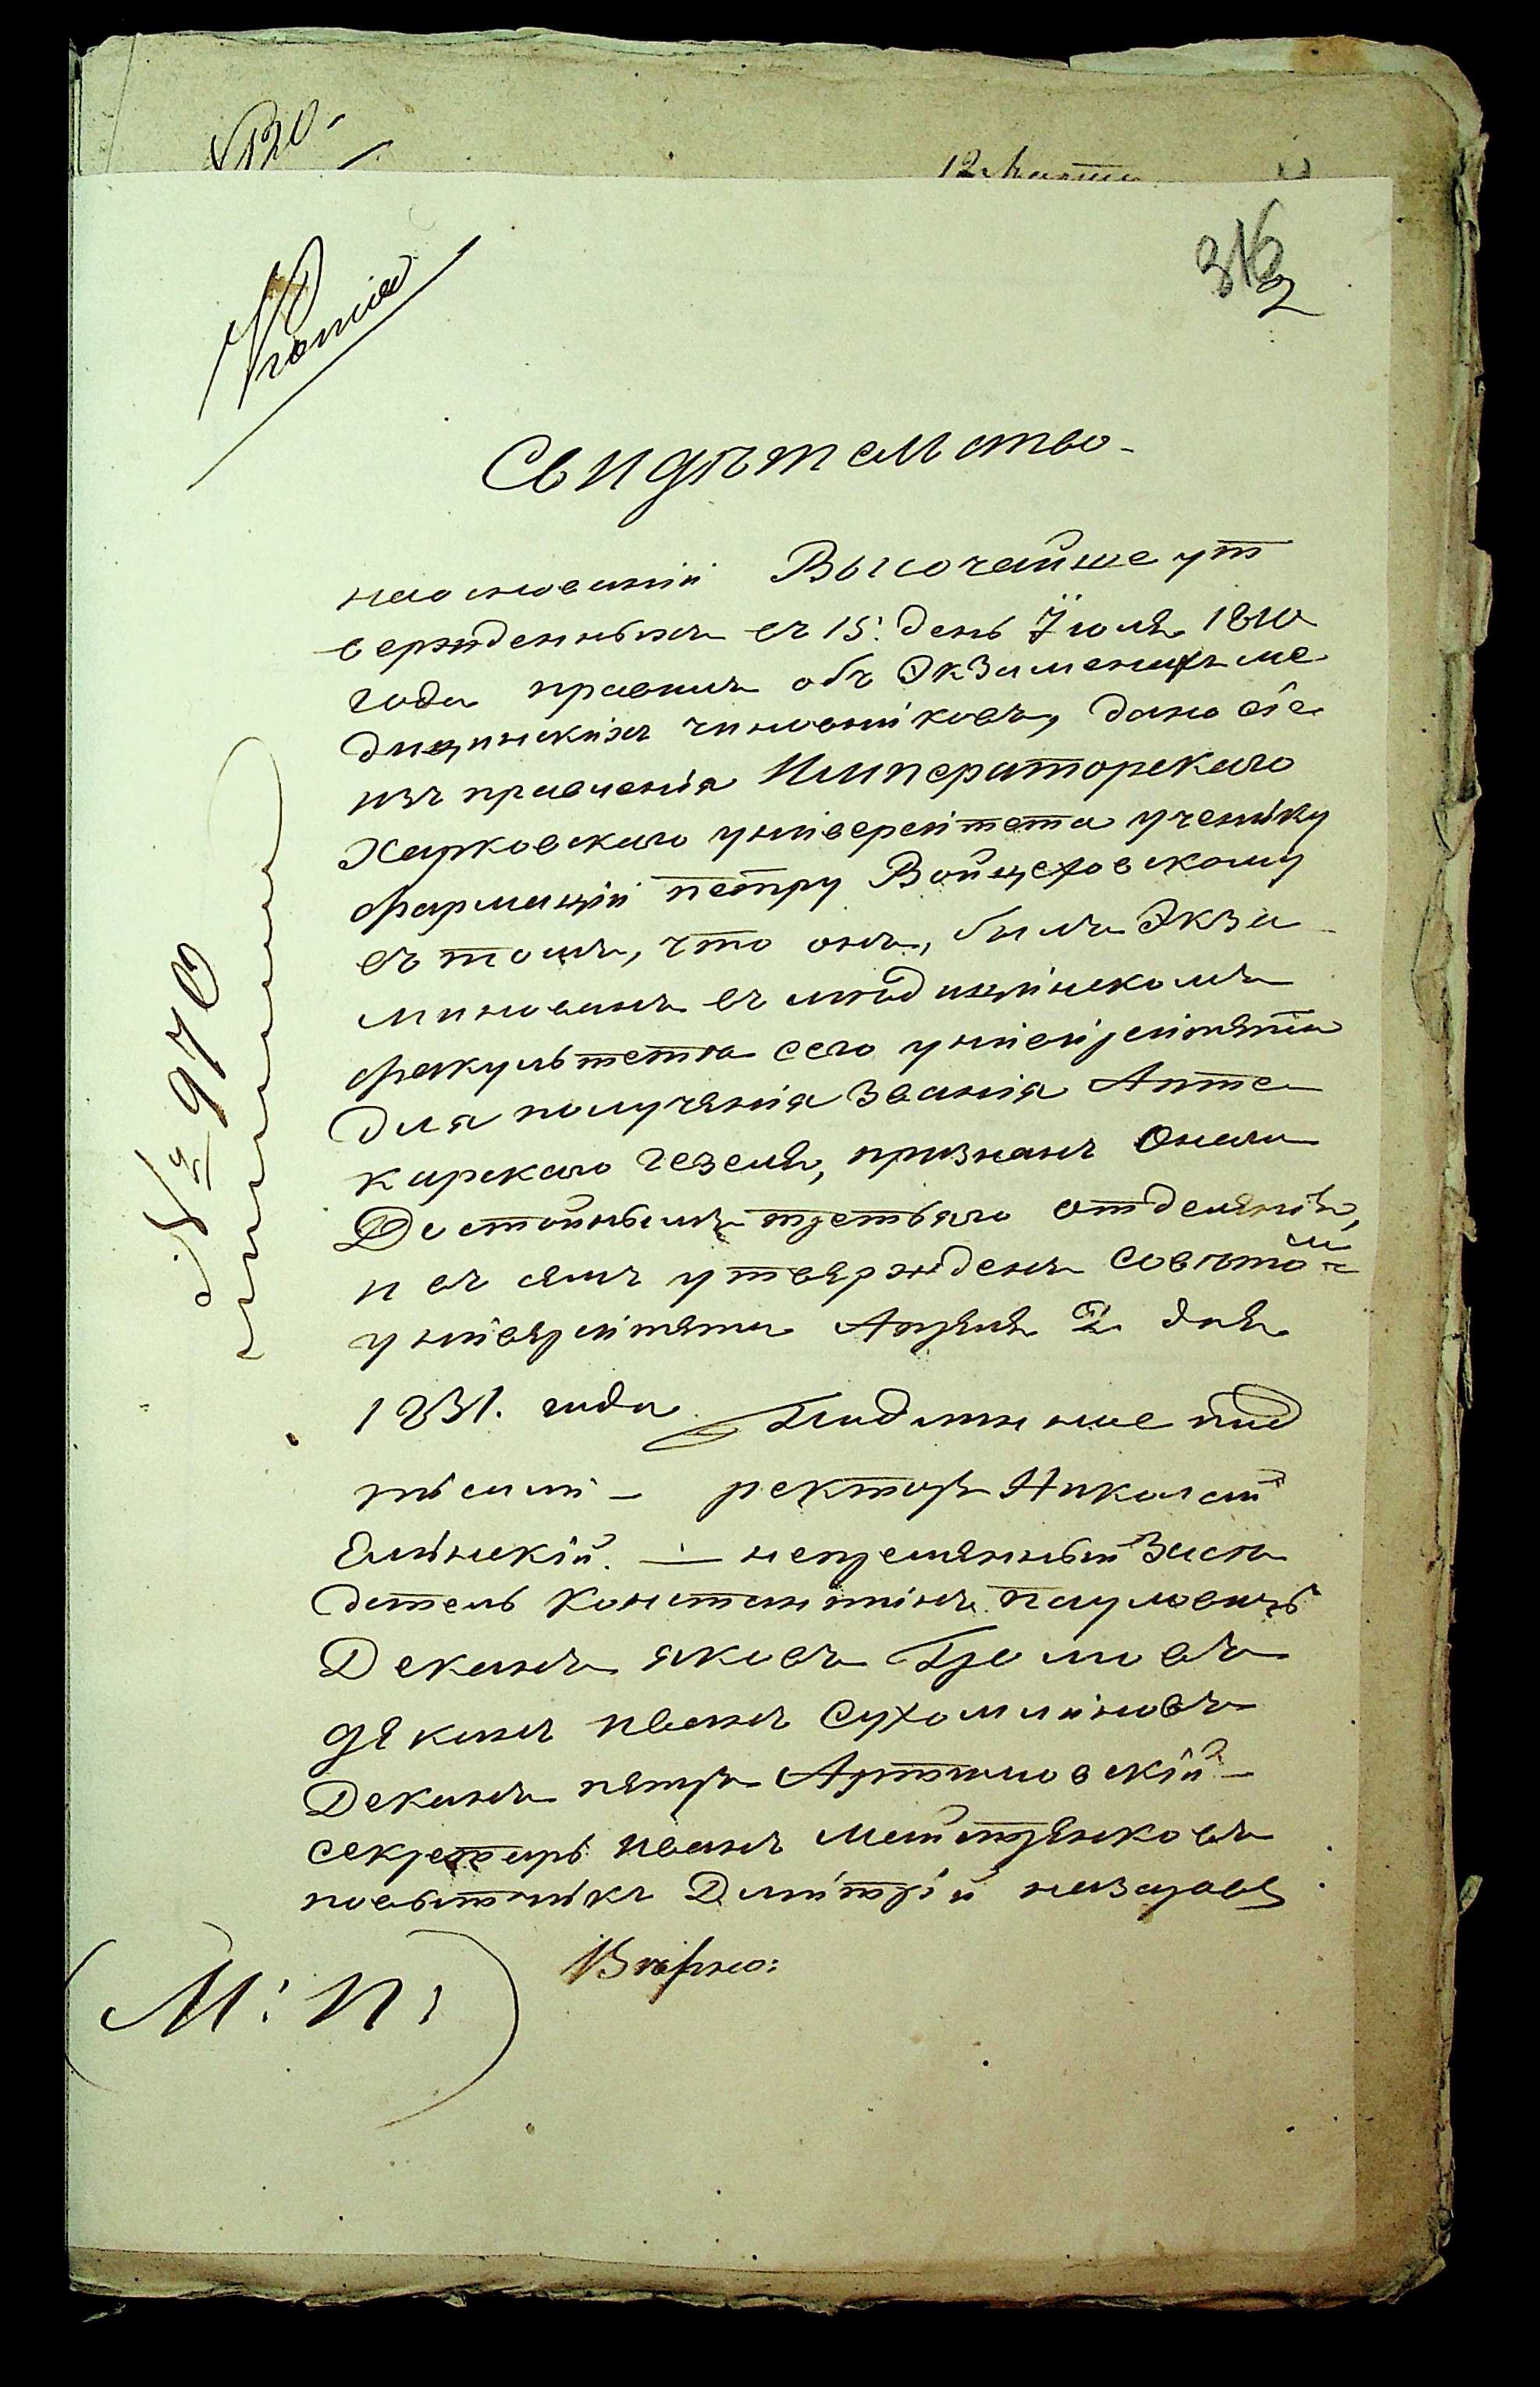 12 Марта
316
2
Копія
№ 970
Свидѣтельство
на основаніи Высочайше ут
вержденныхъ въ 15. день Іюля 1810
года правилъ объ Экзаменахъ ме
дицинскихъ чиновніковъ, дано сіе
изъ правленія Императорскаго
Харковскаго універсітета ученіку
фармаціи петру Войцеховскому
въ томъ, что онъ, былъ Экза
минованъ въ медицінскомъ
факультетѣ сего універсітята
для получянія званія Апте
карскаго гезеля, признанъ Онаго
Достойнымъ третьяго отделянія,
и въ семъ утвярждень Совѣтомъ
універсітята Апреля 2 дня
1831. года Подлинное под
писали - ректоръ Николай
Еллінскій. — непремянный Засѣ
датель Константинъ пауловичъ
Деканъ яковъ Громовъ
деканъ иванъ Сухомліновъ
Деканъ пятръ Артемовскій
секретарь иванъ
повытчікъ Дмітрій назаровъ
Вѣрно:
(М: П:)